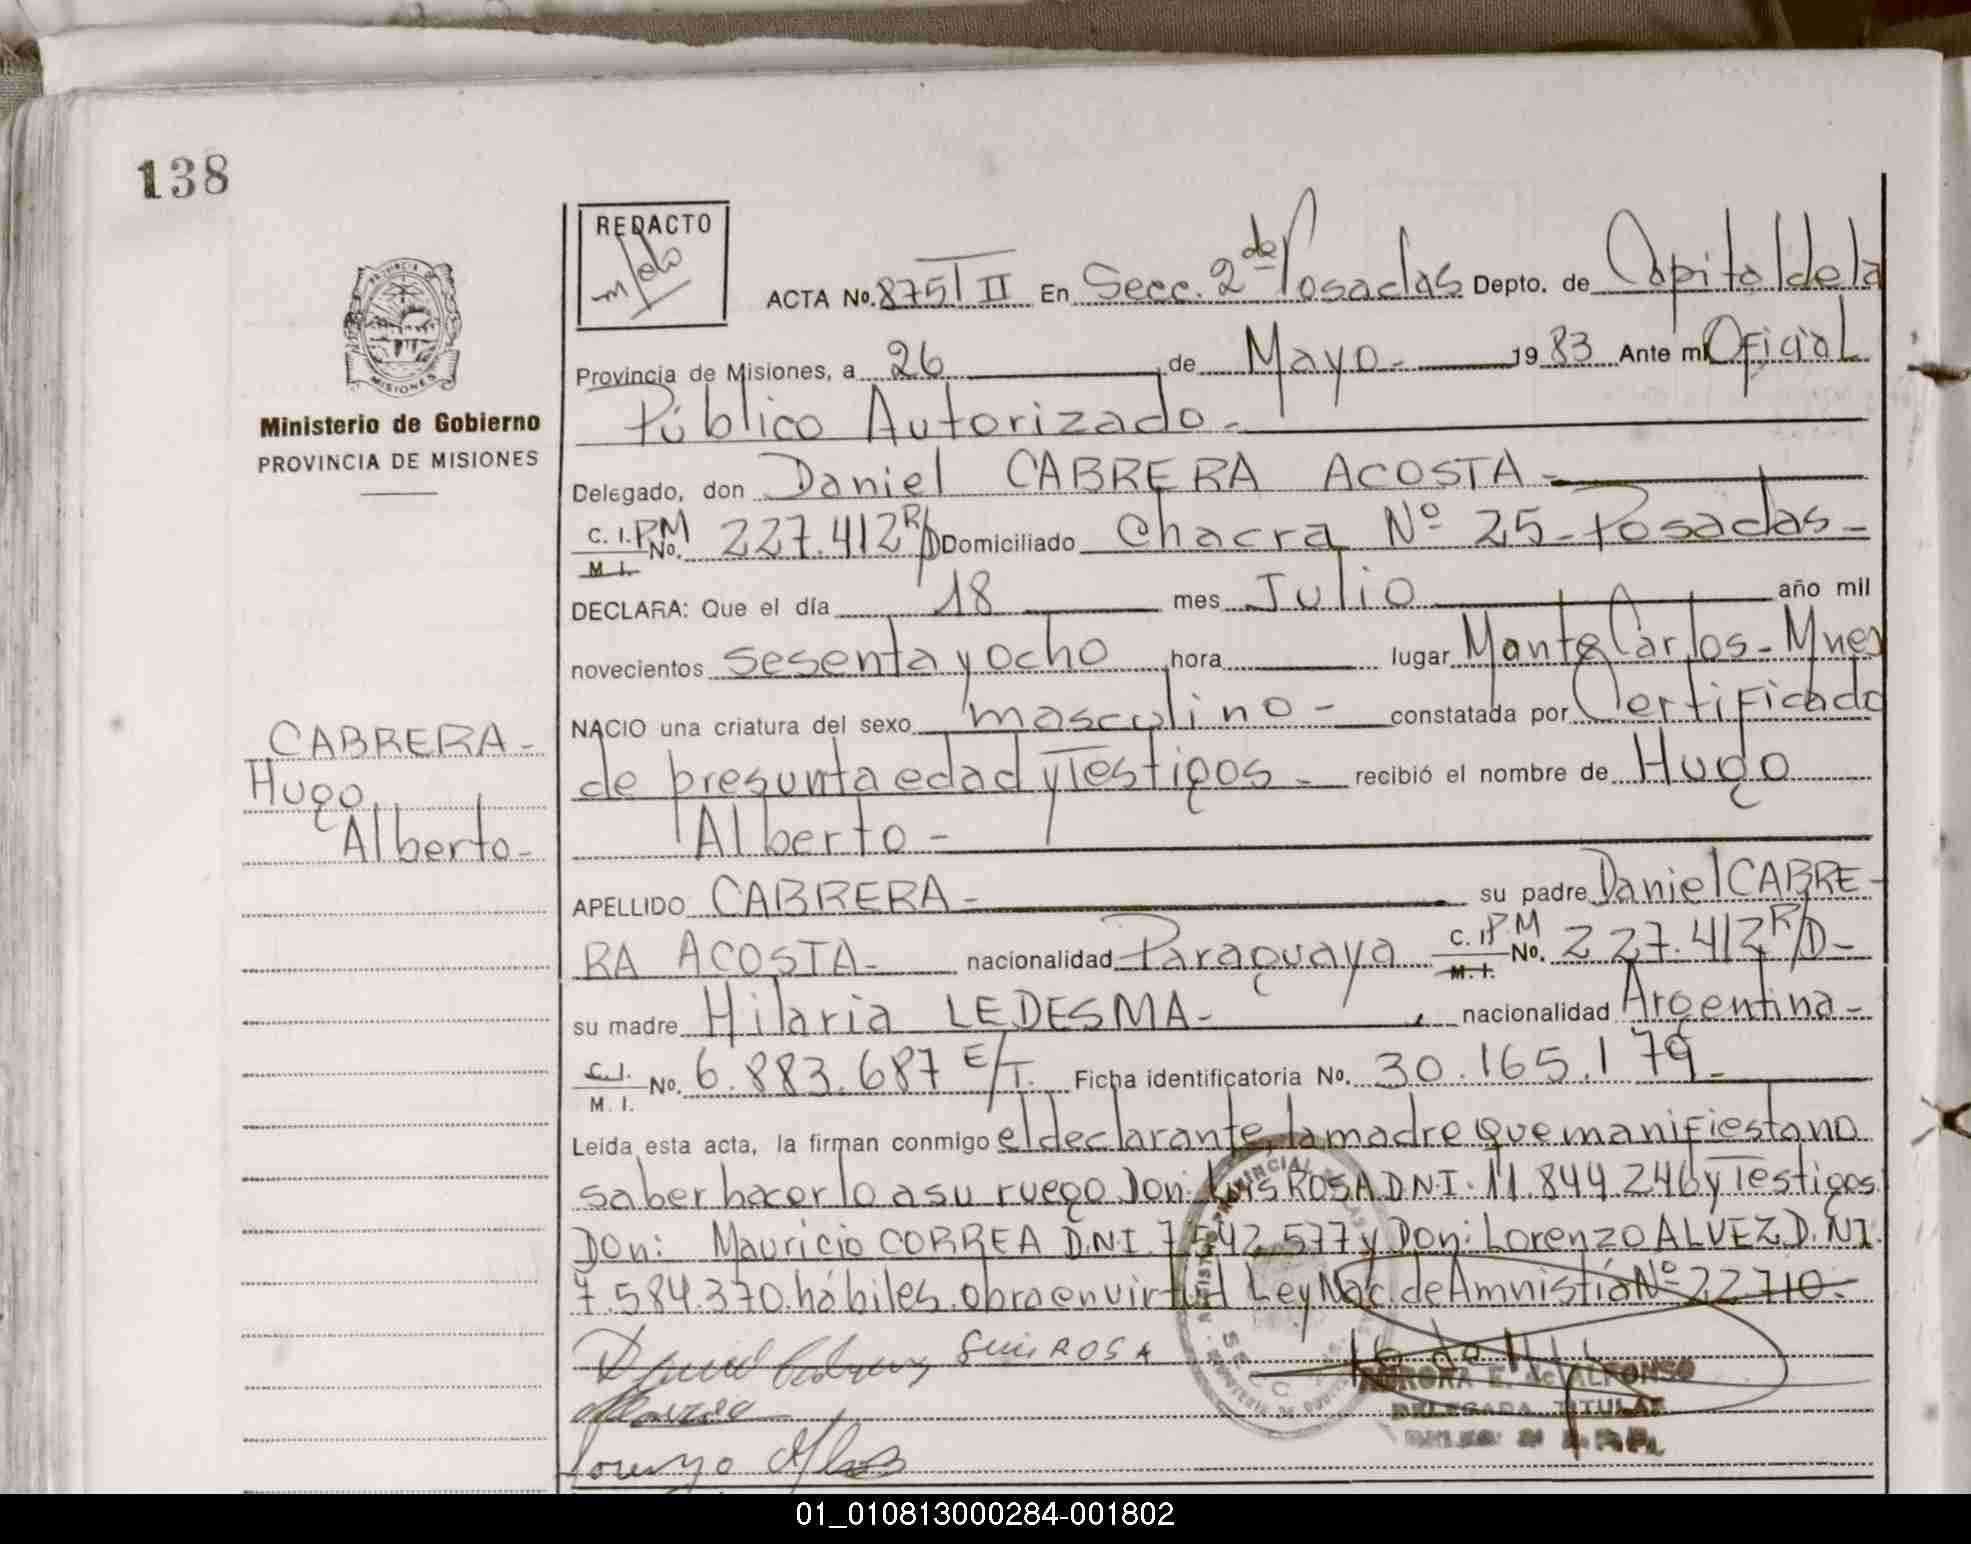 138
REDACTO
Melo
ACTA No. 875/II En Secc. 2da Posadas Depto. de Capital de la
Provincia de Misiones, a 26 de Mayo - 1983 Ante mi Oficial
Público Autorizado -
PROVINCIA DE
MISIONES
Ministerio de Gobierno
PROVINCIA DE MISIONES
Delegado, don Daniel CABRERA ACOSTA -
C. I. PM No. 227.412 R/D Domiciliado Chacra Nº 25 - Posadas -
M. I.
DECLARA: Que el día 18 mes Julio año mil
novecientos sesenta y ocho hora lugar Monte Carlos - Mnes
NACIO una criatura del sexo masculino - constatada por Certificado
de presunta edad y Testigos - recibió el nombre de Hugo
Alberto -
CABRERA -
Hugo
Alberto -
APELLIDO CABRERA - su padre Daniel CABRE-
RA ACOSTA - nacionalidad Paraguaya C. I. PM No. 227.412 R/D -
M. I.
su madre Hilaria LEDESMA - nacionalidad Argentina -
C. I. No. 6.883.687 E/T. Ficha identificatoria No. 30.165.179 -
M. I.
Leida esta acta, la firman conmigo el declarante, la madre que manifiesta no
saber hacerlo a su ruego Don: Luis ROSA DNI. 11.844.246 y Testigos
Don: Mauricio CORREA D.N.I. 7.542.577 y Don: Lorenzo ALVEZ D.NI.
7.584.370. hábiles. obra en virtud Ley Nac. de Amnistía Nº 22710 -
Luis ROSA
Lorenzo
AURORA E. de ALFONSO
DELEGADA TITULAR
01_010813000284-001802